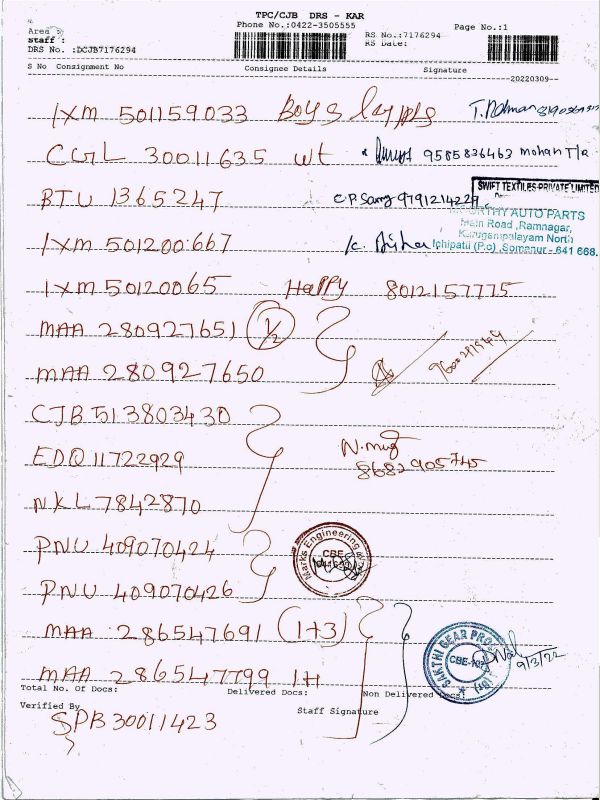 TPC/CJB DRS - KAR
Phone No.:0422-3505555 Page No.:1
Area :
Staff : RS No.:7176294
DRS No. :DCJB7176294 RS Date:
S No Consignment No Consignee Details Signature
20220309
IXM 501159033 Boys
CGL 30011635 wt 9585836463 mohan T/a
BTU 1365247 C.P. 9791214229
SWIFT TEXTILES PRIVATE LIMITED
AUTO PARTS
Main Road ,Ramnagar,
Karugampalayam North
Ichipatti (P.o) ,Somanur - 641 668.
IXM 501200667 K.
IXM 50120065 Happy 8012157775
MAA 280927651 1/2
MAA 280927650
CJB 513803430
EDQ 11722929 N.
8682905745
NKL 7842870
PNU 409070424
Marks Engineering
CBE
PNU 409070426
MAA 286547691 (1+3)
SAKTHI GEAR
CBE
9/3/22
MAA 286547799 1+
Total No. Of Docs: Delivered Docs: Non Delivered Docs:
Verified By
SPB 30011423 Staff Signature